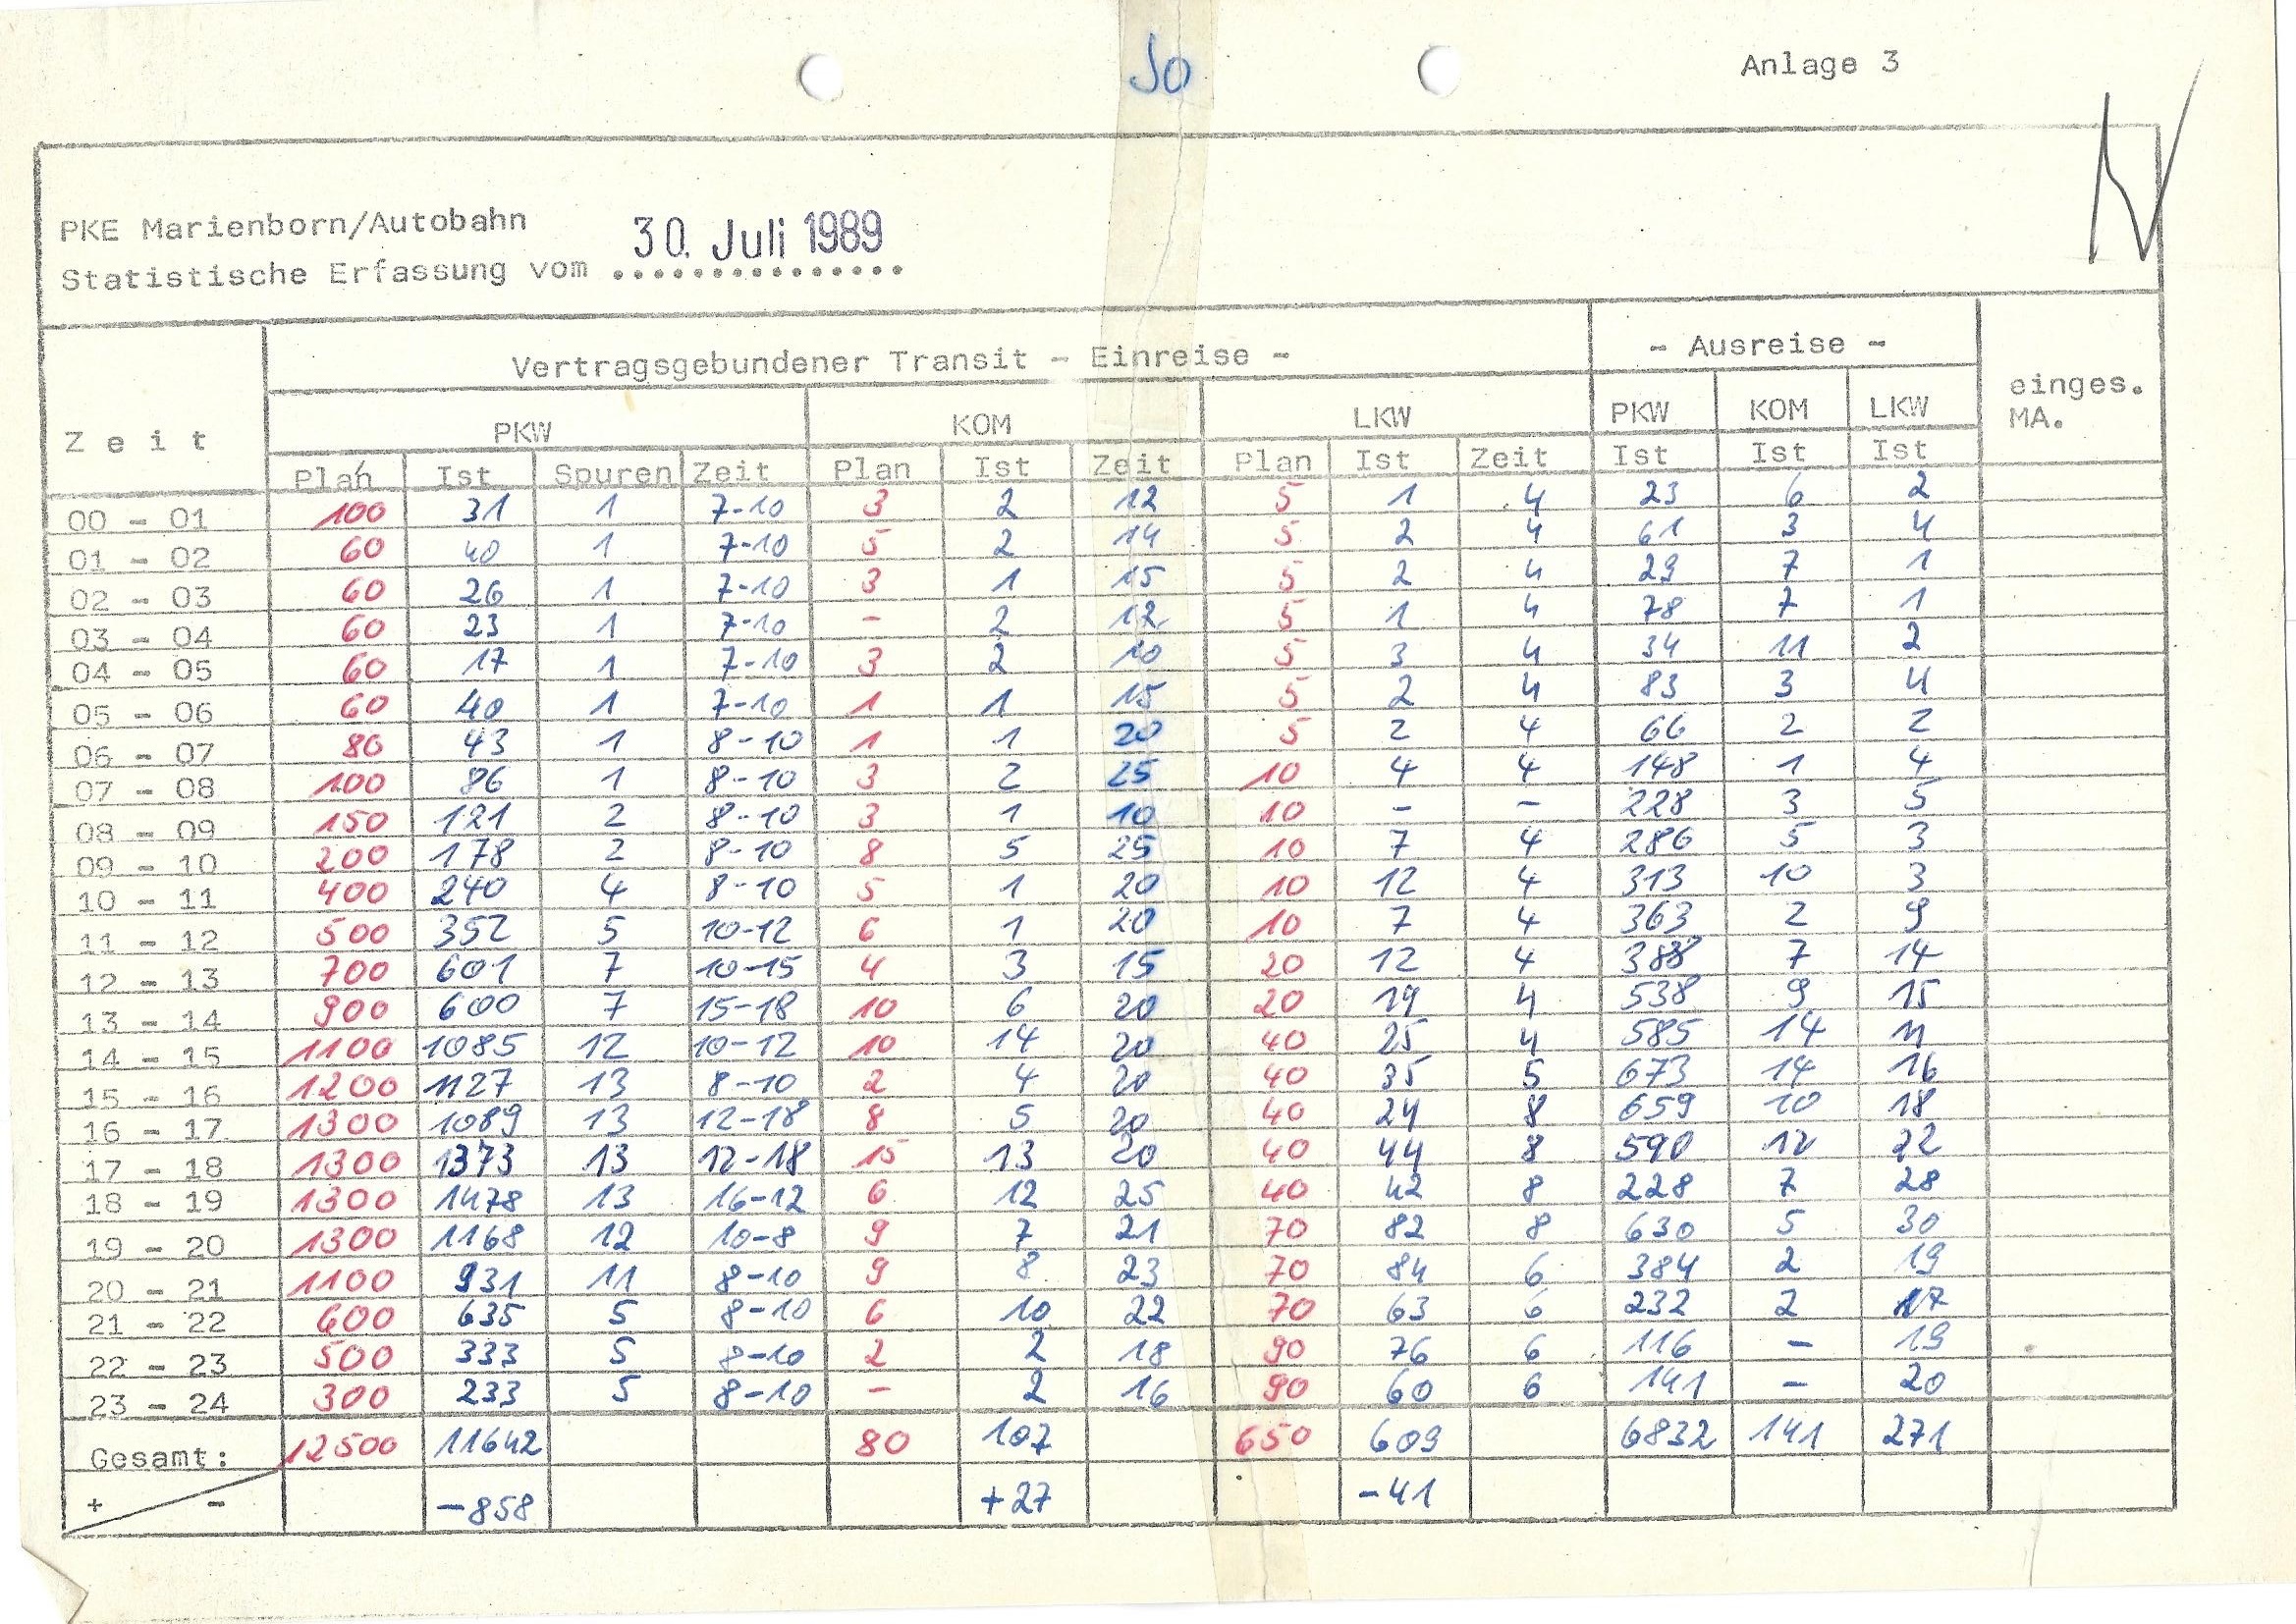 So
Anlage 3
PKE Marienborn/Autobahn
30. Juli 1989
Statistische Erfassung vom ...............
Vertragsgebundener Transit - Einreise - - Ausreise -
Z e i t PKW KOM LKW PKW KOM LKW einges. MA.
Plan Ist Spuren Zeit Plan Ist Zeit Plan Ist Zeit Ist Ist Ist
00 - 01 100 31 1 7-10 3 2 12 5 1 4 23 6 2
01 - 02 60 40 1 7-10 5 2 14 5 2 4 61 3 4
02 - 03 60 26 1 7-10 3 1 15 5 2 4 29 7 1
03 - 04 60 23 1 7-10 - 2 12 5 1 4 78 7 1
04 - 05 60 17 1 7-10 3 2 10 5 3 4 34 11 2
05 - 06 60 40 1 7-10 1 1 15 5 2 4 83 3 4
06 - 07 80 43 1 8-10 1 1 20 5 2 4 66 2 2
07 - 08 100 86 1 8-10 3 2 25 10 4 4 148 1 4
08 - 09 150 121 2 8-10 3 1 10 10 - - 228 3 5
09 - 10 200 178 2 8-10 8 5 25 10 7 4 286 5 3
10 - 11 400 240 4 8-10 5 1 20 10 12 4 313 10 3
11 - 12 500 352 5 10-12 6 1 20 10 7 4 363 2 9
12 - 13 700 601 7 10-15 4 3 15 20 12 4 388 7 14
13 - 14 900 600 7 15-18 10 6 20 20 19 4 538 9 15
14 - 15 1100 1085 12 10-12 10 14 20 40 25 4 585 14 11
15 - 16 1200 1127 13 8-10 2 4 20 40 35 5 673 14 16
16 - 17 1300 1089 13 12-18 8 5 20 40 24 8 659 10 18
17 - 18 1300 1373 13 12-18 15 13 20 40 44 8 590 22
18 - 19 1300 1478 13 16-12 6 12 25 40 42 8 228 7 28
19 - 20 1300 1168 12 10-8 9 7 21 70 82 8 630 5 30
20 - 21 1100 931 11 8-10 9 8 23 70 84 6 384 2 19
21 - 22 600 635 5 8-10 6 10 22 70 63 6 232 2 17
22 - 23 500 333 5 8-10 2 2 18 90 76 6 116 - 19
23 - 24 300 233 5 8-10 - 2 16 90 60 6 141 - 20
Gesamt: 12500 11642 80 107 650 609 6832 141 271
+ - -858 +27 -41